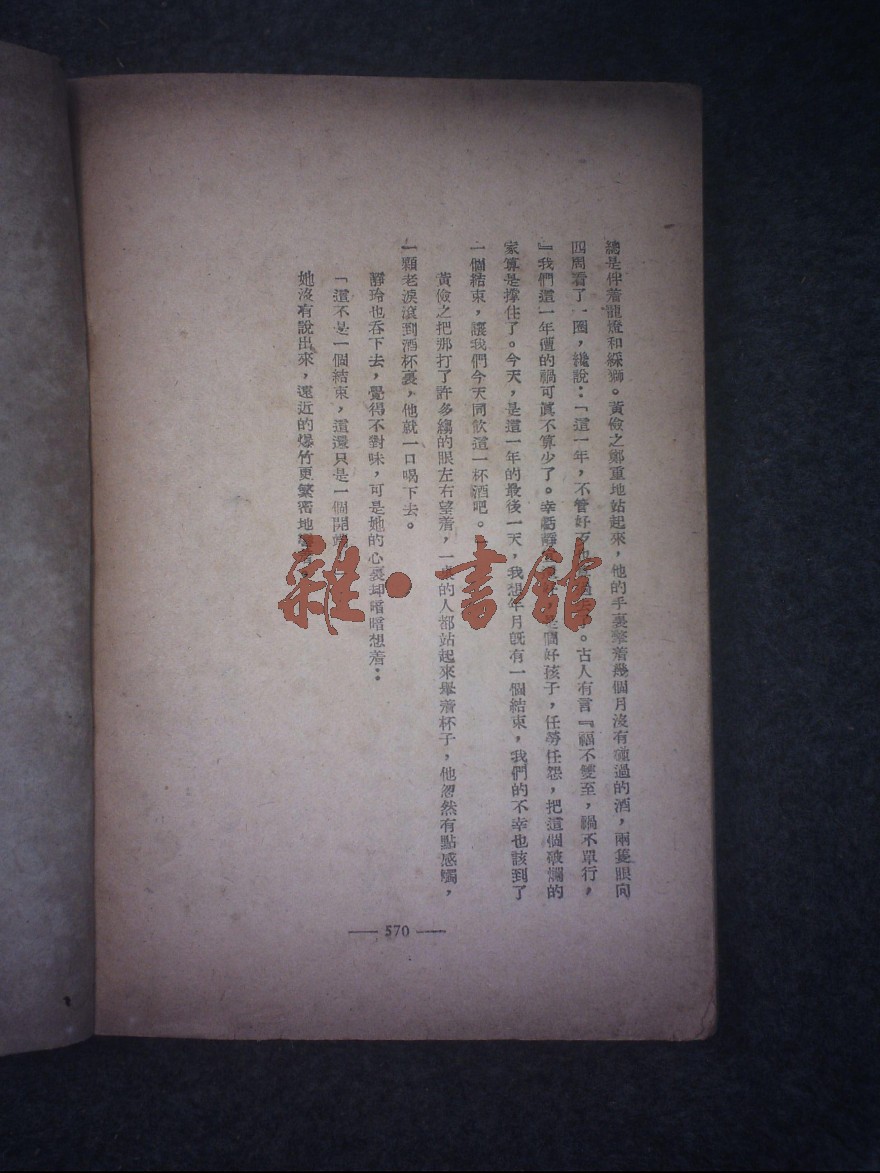 總是伴着龍燈和綵獅。黃儉之鄭重地站起來，他的手裏擎着幾個月沒有碰過的酒，兩隻眼向
四周看了一圈，纔說：「這一年，不管好歹。古人有言『福不雙至，禍不單行，
』我們這一年遭的禍可眞不算少了。幸虧靜個好孩子，任勞任怨，把這個破爛的
家算是撐住了。今天，是這一年的最後一天，我想年月旣有一個結束，我們的不幸也該到了
一個結束，讓我們今天同飲這一杯酒吧。」
黃儉之把那打了許多縐的眼左右望着，一桌的人都站起來舉着杯子，他忽然有點感觸，
一顆老淚滾到酒杯裏，他就一口喝下去。
靜玲也吞下去，覺得不對味，可是她的心裏却暗暗想着：
「這不是一個結束，這還只是一個開
她沒有說出來，遠近的爆竹更繁密地
雜·書館
570